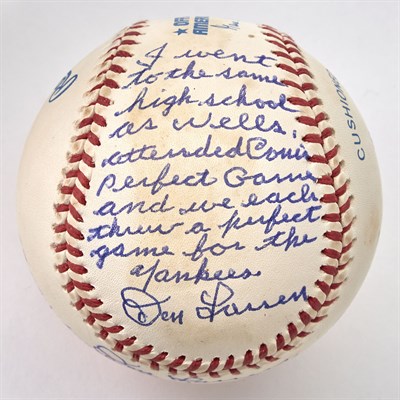 I went
to the same
high school
as Wells,
attended Cone's
Perfect Game
and we each
threw a perfect
game for the
Yankees
Don Larsen
CUSHIONED